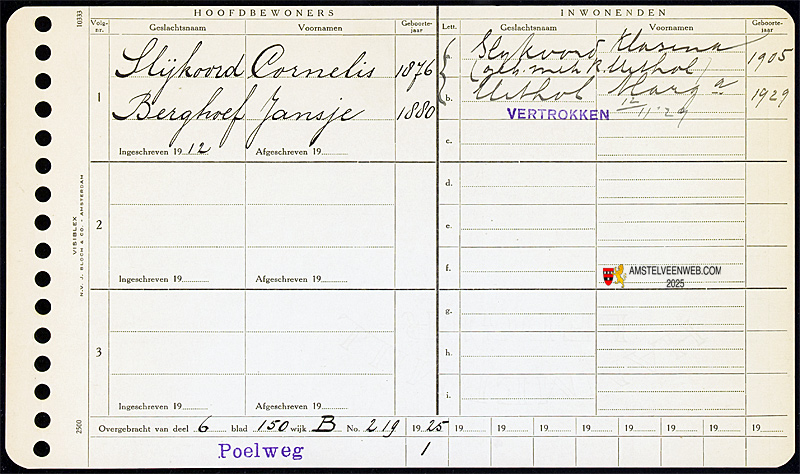 HOOFDBEWONERS INWONENDEN
Volg-nr. Geslachtsnaam Voornamen Geboorte-jaar Lett. Geslachtsnaam Voornamen Geboorte-jaar
Slijkoord Cornelis 1876 a. Slijkoord Klasina 1905
(geh. met R. Uithol)
1 Berghoef Jansje 1880 b. Uithol Marg a. 1929
VERTROKKEN 12/11 '29
Ingeschreven 1912 Afgeschreven 19 c.
d.
2 e.
Ingeschreven 19 Afgeschreven 19 f.
g.
3 h.
Ingeschreven 19 Afgeschreven 19 i.
Overgebracht van deel 6 blad 150 wijk B No. 219 1925 19 19 19 19 19 19 19 19
Poelweg 1
10333
VISIBLEX
N.V. J. BLOCH & CO. - AMSTERDAM
2500
AMSTELVEENWEB.COM
2025